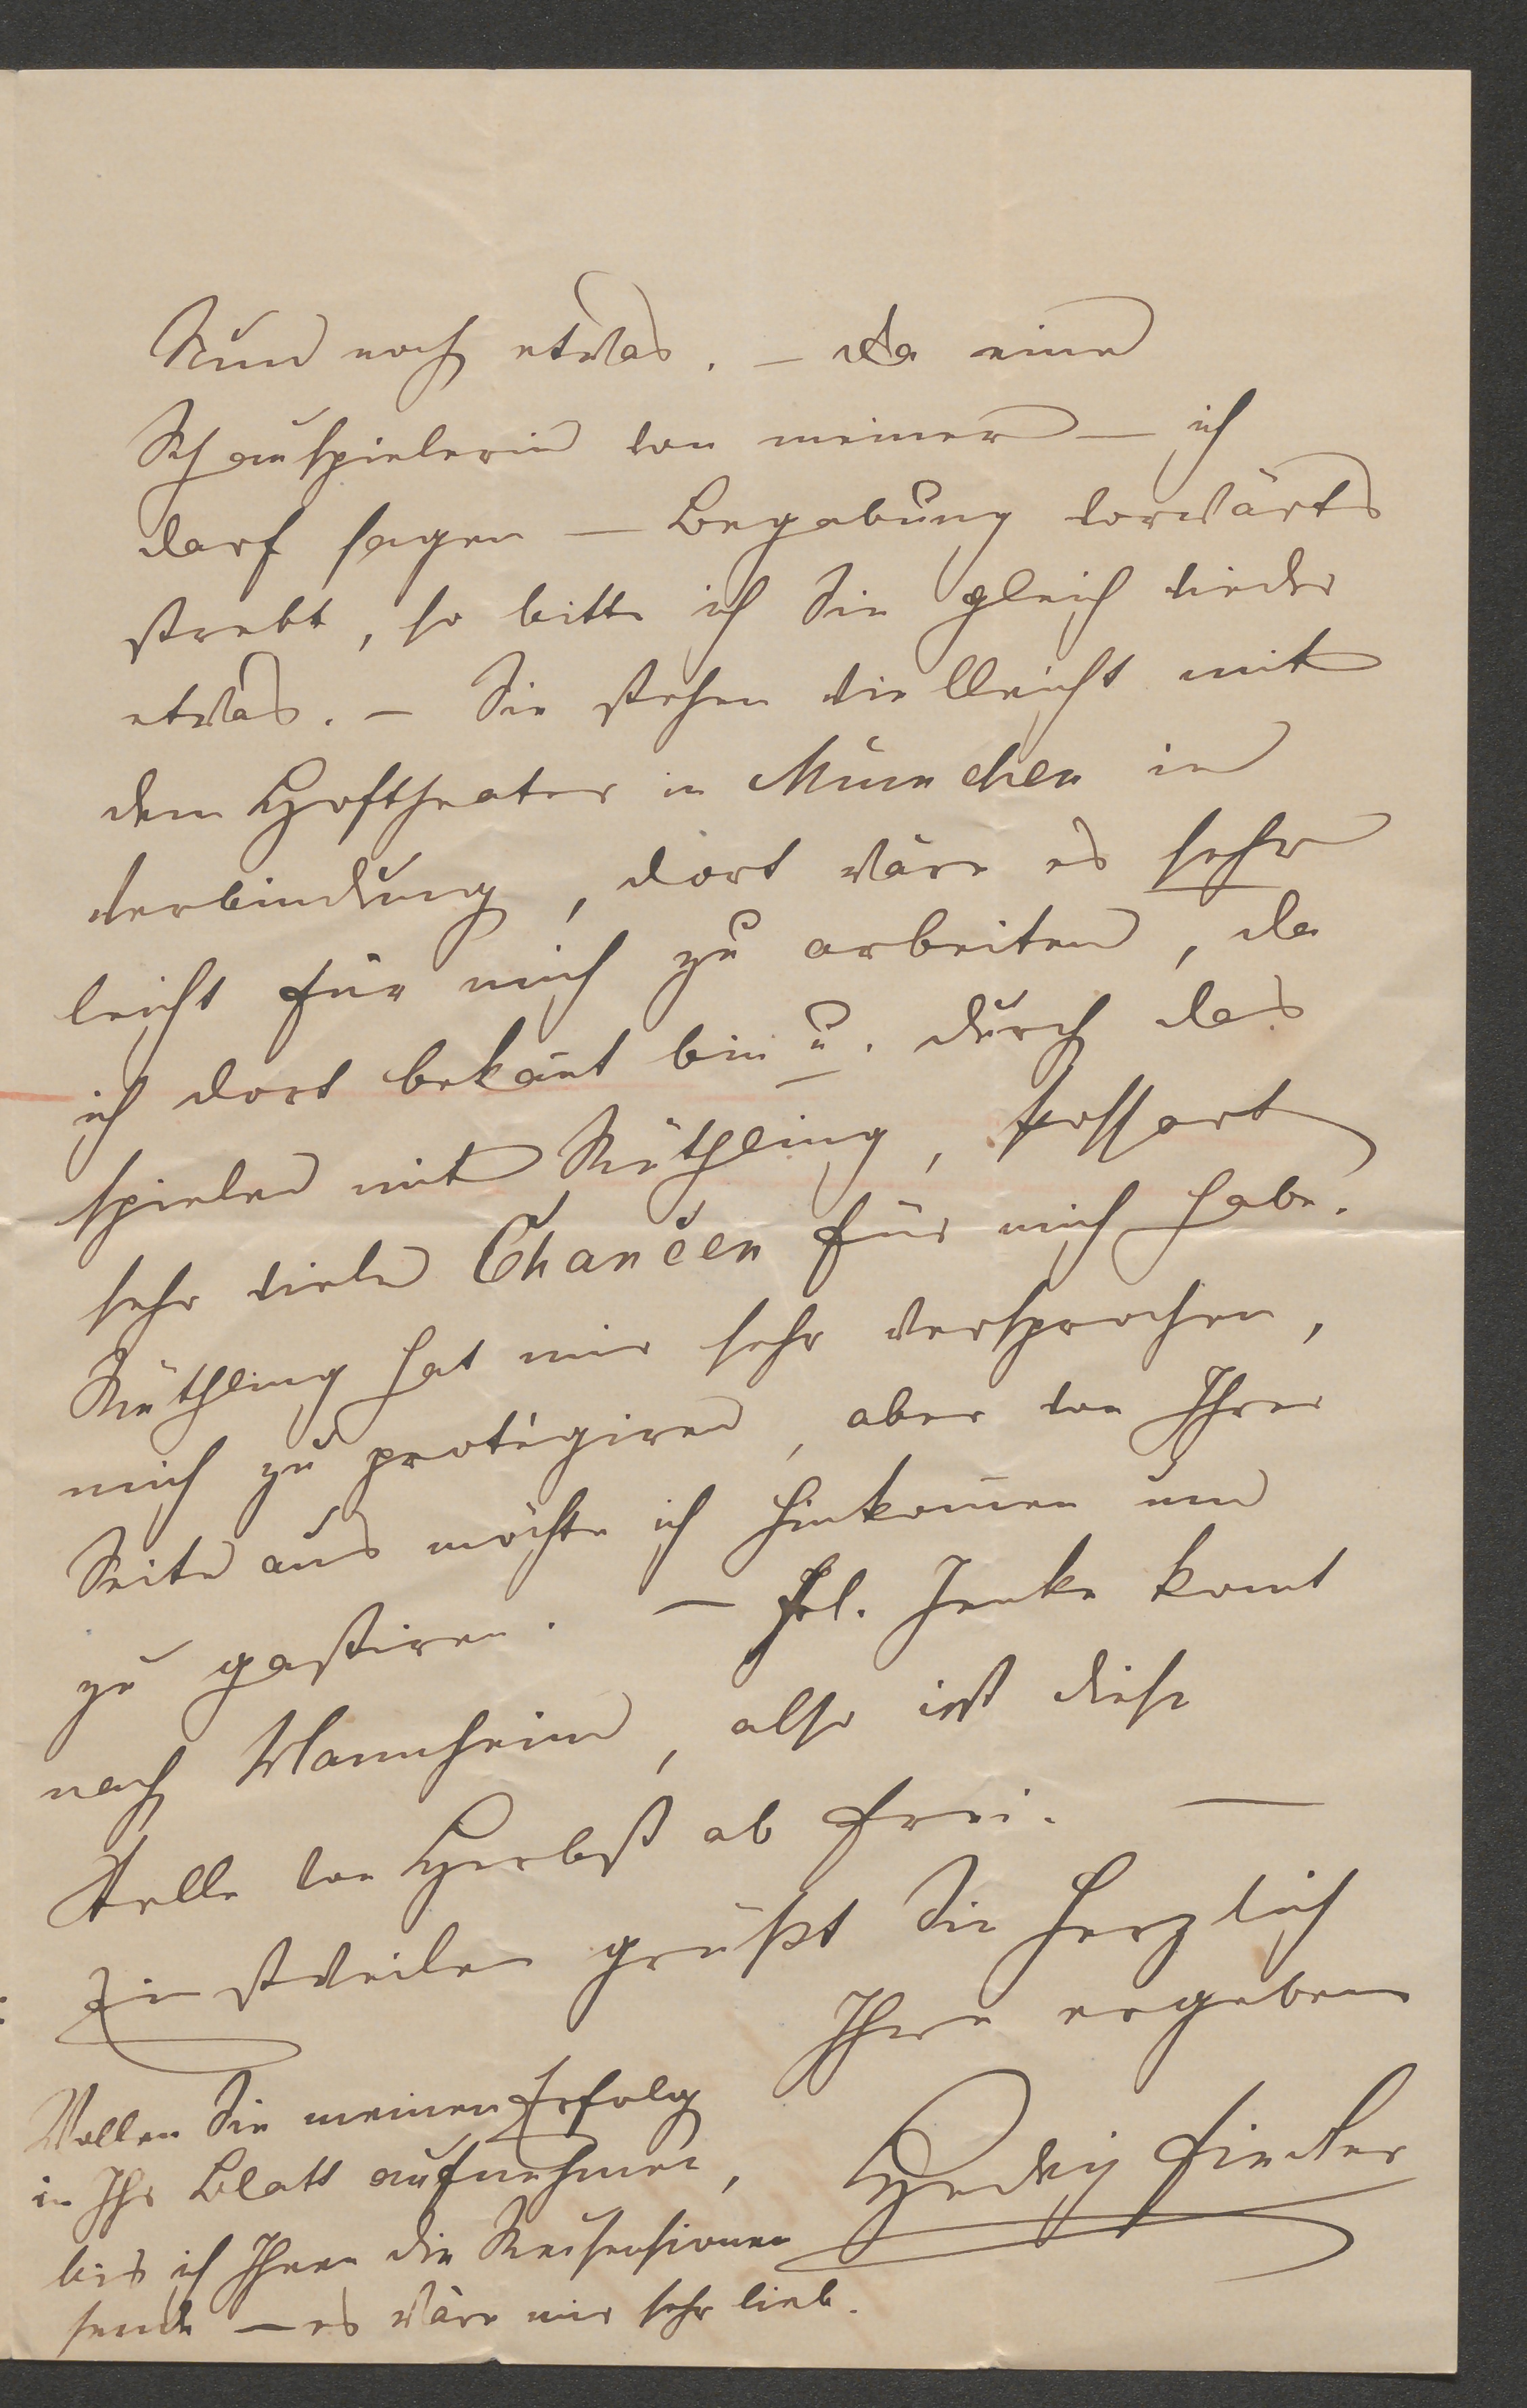 Nun noch etwas. – da eine
Schauspielerin von meiner – ich
darf sagen – Begabung vorwärts
strebt, so bitte ich Sie gleich wieder
etwas. – Sie stehen vielleicht mit
dem Hoftheater in München in
Verbindung, dort wäre es sehr
leicht für mich zu arbeiten, da
ich dort bekan̄t bin u. durch das
spielen mit Rüthling, Possart
sehr viele Chancen für mich habe.
Rüthling hat mir sehr versprochen,
mich zu protégiren, aber von Ihrer
Seite aus möchte ich hinkom̄en um
zu gastiren. – Frl. Jenke kom̄t
nach Mannheim, also ist diese
Stelle von Herbst ab frei. –
Einstweilen grüßt Sie herzlich
Ihre ergebene
Hedwig
Wollen Sie meinen Erfolg
in Ihr Blatt aufnehmen,
bis ich Ihnen die Recensionen
sende – es wäre mir sehr lieb.